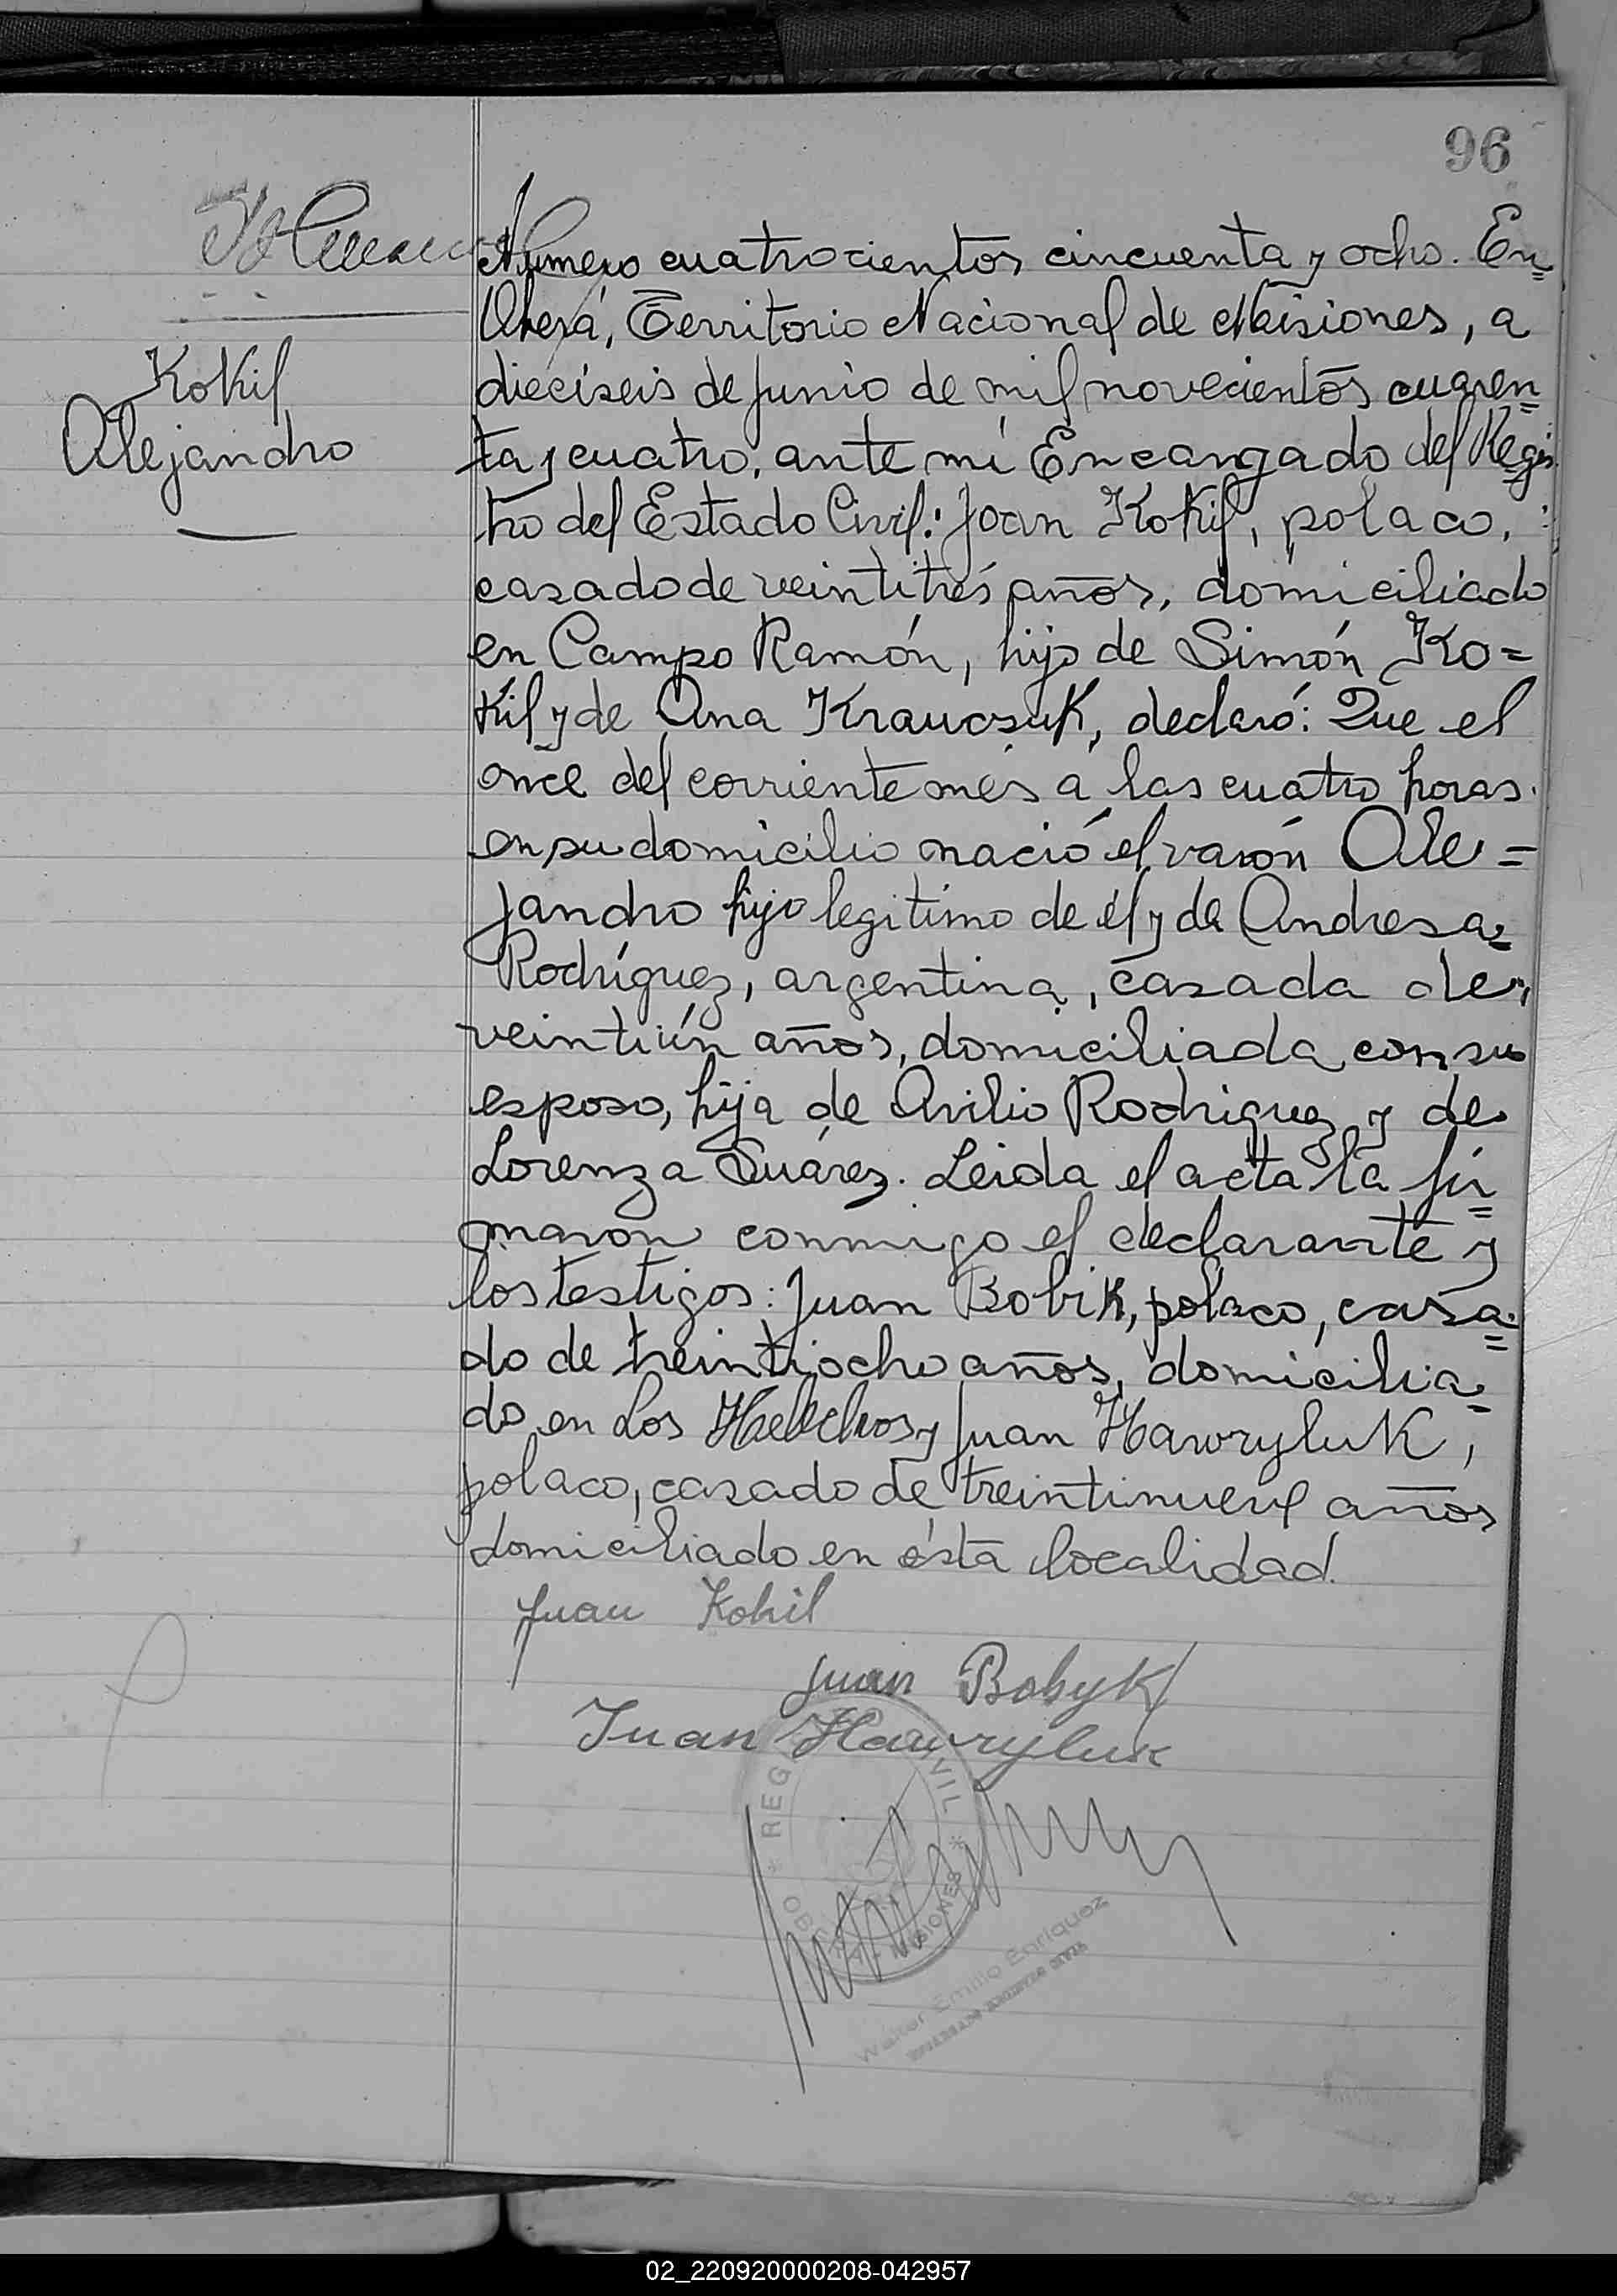 96
Kokil
Alejandro
Número cuatrocientos cincuenta y ocho. En=
Oberá, Territorio Nacional de Misiones, a
dieciseis de junio de mil novecientos cuaren=
ta y cuatro, ante mí Encargado del Regis=
tro del Estado Civil: Joan Kokil, polaco,
casado de veintitrés años, domiciliado
en Campo Ramón, hijo de Simón Ko=
kil y de Ana Kraucsuk, declaró: Que el
once del corriente mes a las cuatro horas
en su domicilio nació el varón Ale=
jandro hijo legitimo de él y de Andresa=
Rodríguez, argentina, casada de
veintiún años, domiciliada con su
esposo, hija de Avilio Rodriguez y de
Lorenza Suárez. Leida el acta la fir=
maron conmigo el declarante y
los testigos: Juan Bobik, polaco, casa=
do de treintiocho años, domicilia=
do en Los Helechos y Juan Hawryluk,
polaco, casado de treintinueve años
domiciliado en ésta localidad.
Juan Kokil
Juan Bobyk
Juan Hawryluk
REG CIVIL
OBERÁ - MISIONES
Walter Emilio Enriquez
02_220920000208-042957